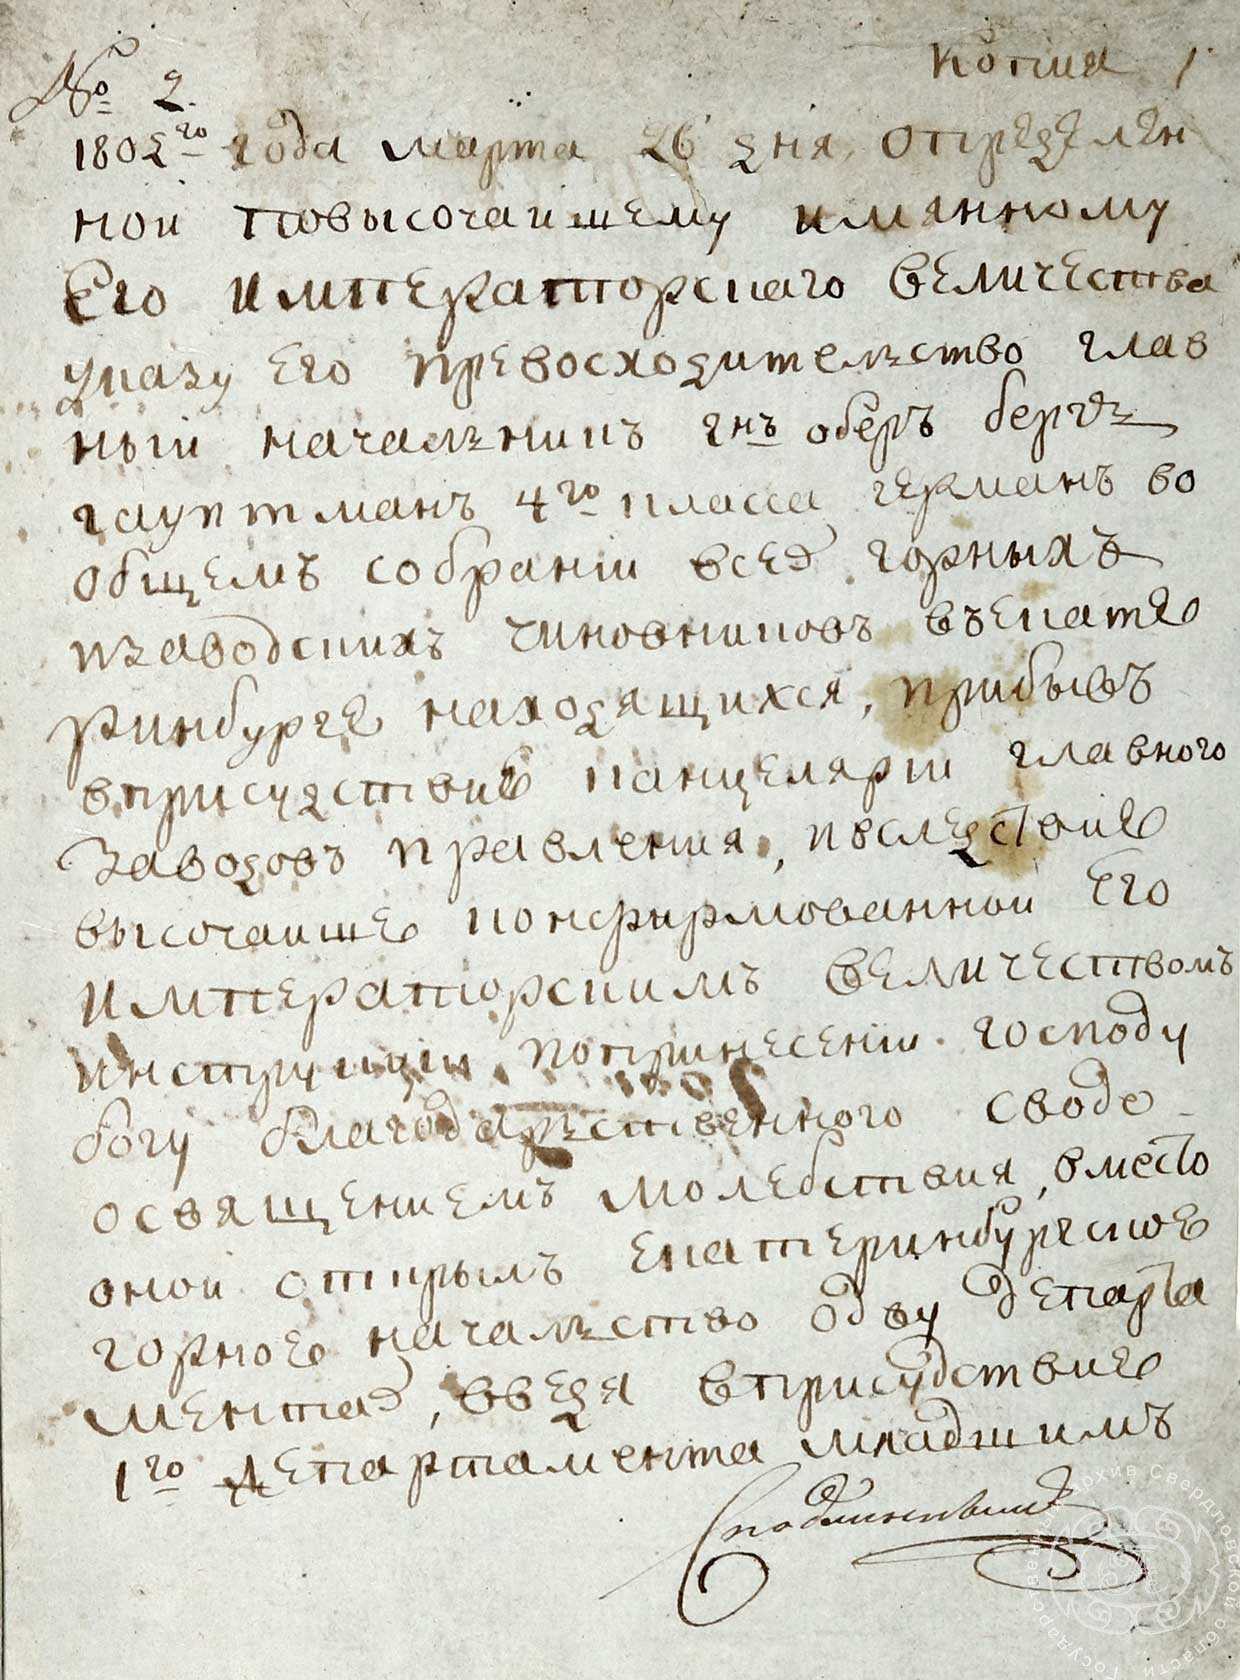 № 2.
Копия 1
1802го года марта 26 дня, определен
ной повысочайшему имянному
Его императорскаго величества
указу Его превосходительство глав
ный начальникъ гнъ оберъ берггъ
гауптманъ 4го класса германъ во
общемъ собрании всех горныхъ
изаводскихъ чиновниковъ въекате
ринбурге находящихся, прибывъ
вприсудствие канцелярии главного
заводовъ правления, вследствие
высочайше конфирмованной Его
императорскимъ величествомъ
инструкции, попринесении господу
богу благодарственного сводо
освящениемъ молебствия, вместо
оной открылъ екатеринбургское
горное началство одву департа
ментах, введя вприсудствие
1го департамента младшимъ
Государственный архив Свердловской области